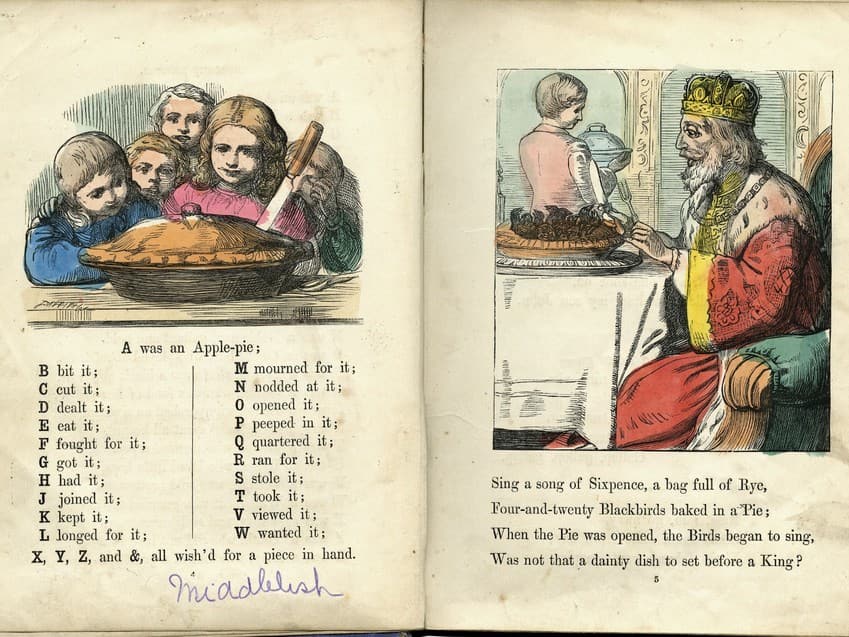 A was an Apple-pie;
B bit it;
C cut it;
D dealt it;
E eat it;
F fought for it;
G got it;
H had it;
J joined it;
K kept it;
L longed for it;
M mourned for it;
N nodded at it;
O opened it;
P peeped in it;
Q quartered it;
R ran for it;
S stole it;
T took it;
V viewed it;
W wanted it;
X, Y, Z, and &, all wish'd for a piece in hand.
Sing a song of Sixpence, a bag full of Rye,
Four-and-twenty Blackbirds baked in a Pie;
When the Pie was opened, the Birds began to sing,
Was not that a dainty dish to set before a King?
5